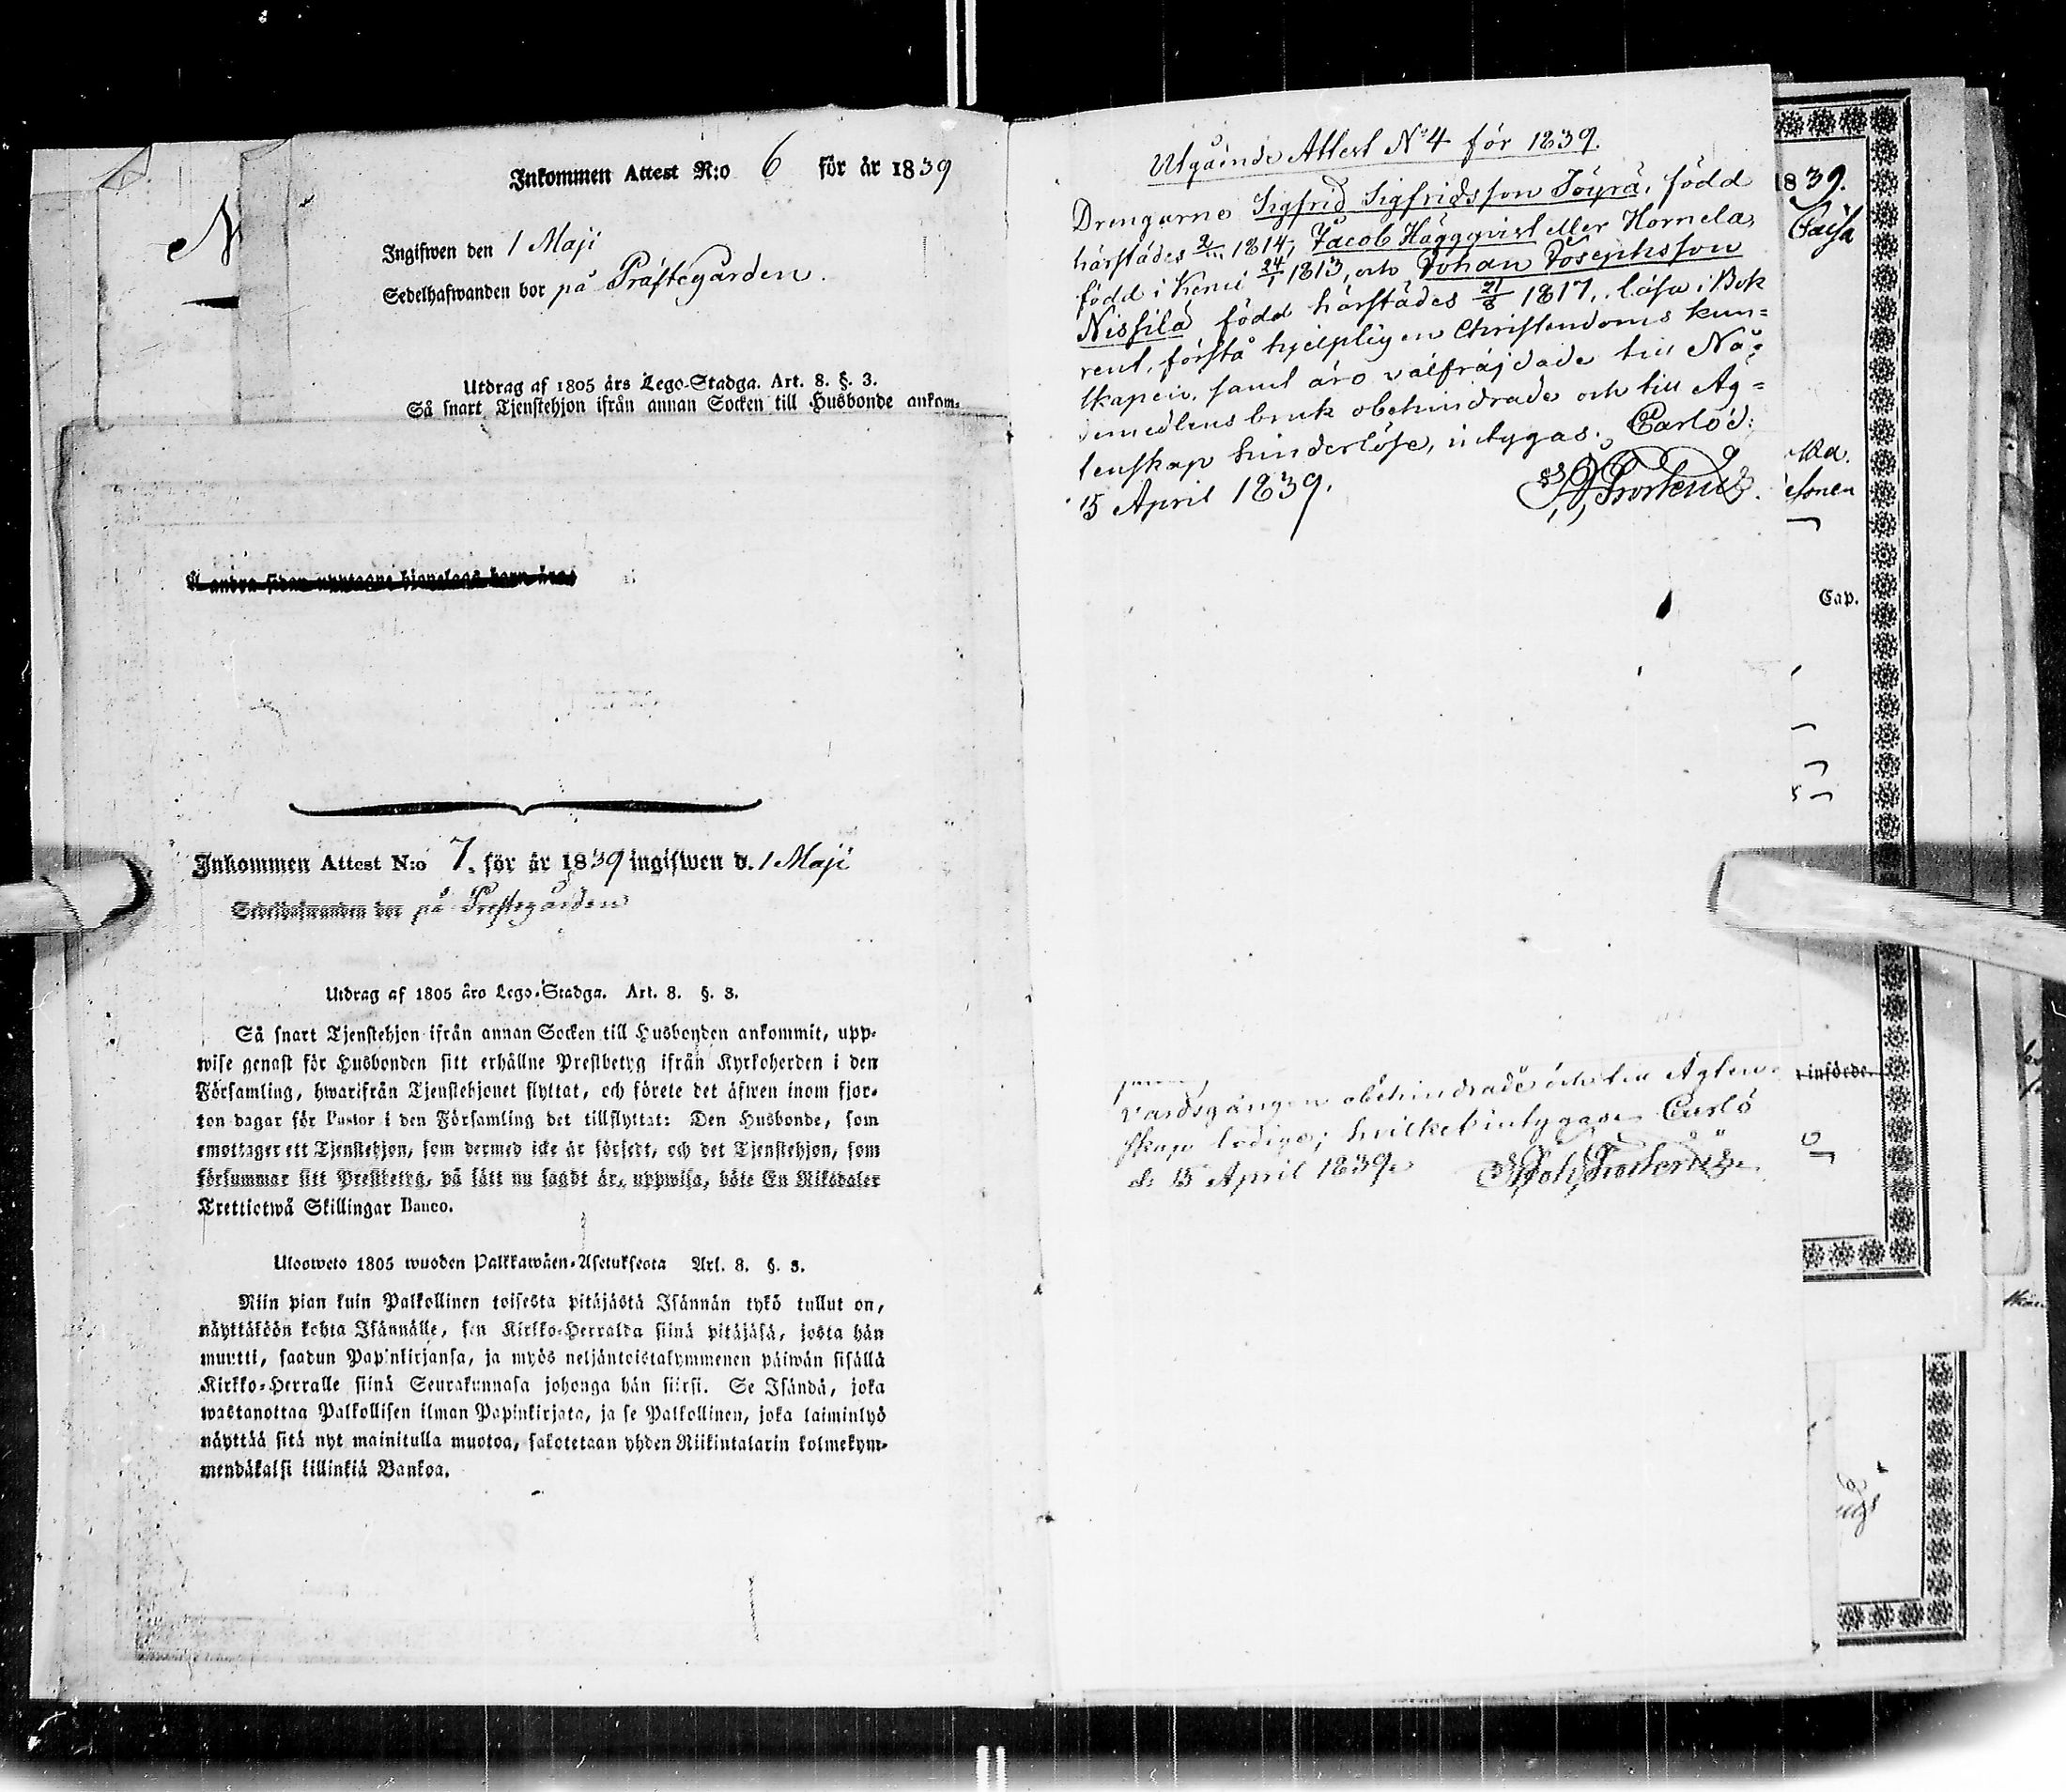 Inkommen Attest N:o 6 för år 1839
Ingifwen den 1 Maji
Sedelhafwanden bor på Prästegården.
Utdrag af 1805 års Lego-Stadga. Art. 8. §. 3.
Så snart Tjenstehjon ifrån annan Socken till Husbonde ankom-
Inkommen Attest N:o 7. för år 1839 ingifwen d. 1 Maji
Sedelhafwanden bor på Prestegården
Utdrag af 1805 åro Lego-Stadga. Art. 8. §. 3.
Så snart Tjenstehjon ifrån annan Socken till Husbonden ankommit, upp-
wise genast för Husbonden sitt erhållne Prestbetyg ifrån Kyrkoherden i den
Församling, hwarifrån Tjenstehjonet flyttat, och förete det äfwen inom fjor-
ton dagar för Pastor i den Församling det tillflyttat: Den Husbonde, som
emottager ett Tjenstehjon, som dermed icke är försedt, och det Tjenstehjon, som
försummar sitt Prestbetyg, på sätt nu sagdt är, uppwisa, böte En Riksdaler
Trettiotwå Skillingar Banco.
Ulosweto 1805 wuoden Palkkawäen-Asetuksesta Art. 8. §. 3.
Niin pian kuin Palkollinen toisesta pitäjästä Isännän tykö tullut on,
näyttäköön kohta Isännälle, sen Kirkko-Herralda siinä pitäjäsä, josta hän
muutti, saadun Papinkirjansa, ja myös neljäntoistakymmenen päiwän sisällä
Kirkko-Herralle siinä Seurakunnasa johonga hän siirsi. Se Isändä, joka
wastanottaa Palkollisen ilman Papinkirjata, ja se Palkollinen, joka laiminlyö
näyttää sitä nyt mainitulla muotoa, sakotetaan yhden Riikintalarin kolmekym-
mendäkaksi killinkiä Bankoa.
Utgående Attest No 4 för 1839.
Drengarne Sigfrid Sigfridsson Töyrä, född
härstädes 1814, Jacob Häggqvist eller Hornela,
född i Kemi 24/1 1813, och Johan Josephsson
Nissilä född härstädes 21/8 1817, läsa i Bok
rent, förstå hjelpligen Christendoms kun-
skapen, samt äro välfräjdade till Nå-
demedlens bruk obehindrade och till Äg-
tenskap hinderlöse, intygas. Carlö d:
15 April 1839.
vardsgången obehindrade och till Ägten-
skap lediga; hvilket intygas Carlö
d. 15 April 1839
1839.
Caisa
Cap.
införde.